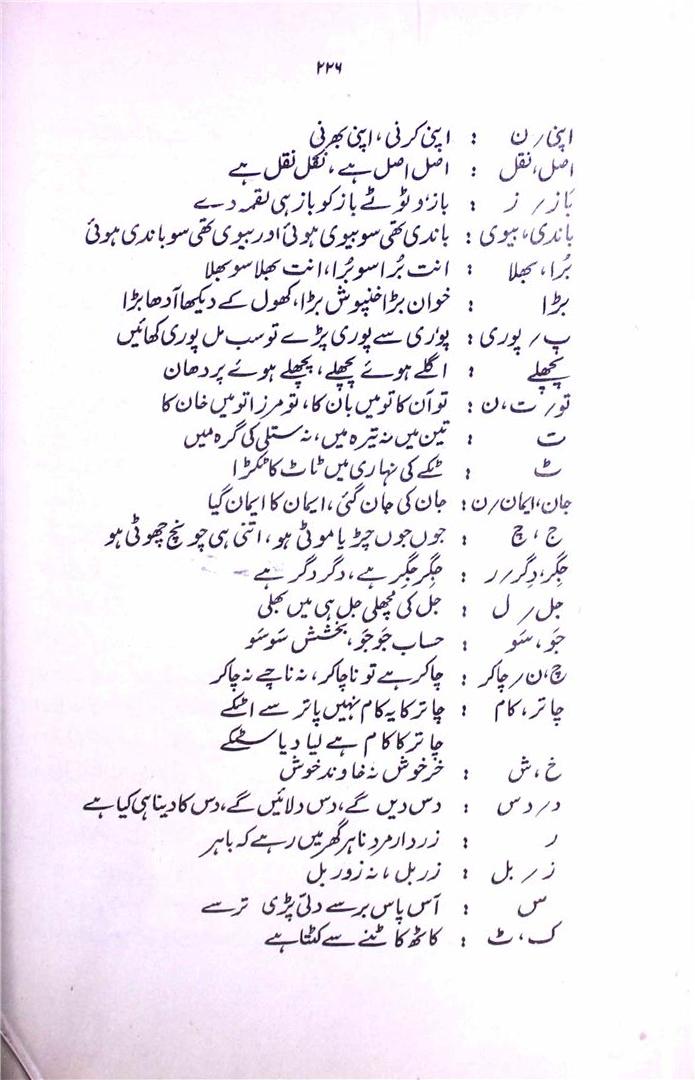 ۲۲۶
اپنی / ن : اپنی کرنی ، اپنی بھرنی
اصل، نقل : اصل اصل ہے ، نقل نقل ہے
باز / ز : بازو ٹوٹے باز کو باز ہی لقمہ دے
باندی، بیوی : باندی تھی سو بیوی ہوئی اور بیوی تھی سو باندی ہوئی
بُرا ، بھلا : انت بُرا سو بُرا، انت بھلا سو بھلا
بڑا : خوان بڑا خنپوش بڑا، کھول کے دیکھا آدھا بڑا
پ / پوری : پوری سے پوری پڑے تو سب مل پوری کھائیں
پچھلے : اگلے ہوئے پچھلے ، پچھلے ہوئے پردھان
تو / ت، ن : تو آن کا تو میں بان کا ، تو مرزا تو میں خان کا
ت : تین میں نہ تیرہ میں ، نہ ستلی کی گرہ میں
ٹ : ٹکے کی نہاری میں ٹاٹ کا ٹکڑا
جان، ایمان / ن : جان کی جان گئی ، ایمان کا ایمان گیا
ج ، چ : جوں جوں چڑیا موٹی ہو ، اتنی ہی چونچ چھوٹی ہو
جِگر، دِگر / ر : جِگر جِگر ہے ، دگر دگر ہے
جل / ل : جل کی مچھلی جل ہی میں بھلی
جَو ، سَو : حساب جَو جَو ، بخشش سَو سَو
چ، ن / چاکر : چاکر ہے تو ناچا کر ، نہ ناچے نہ چاکر
چاتر ، کام : چاتر کا یہ کام نہیں پاتر سے اٹکے
چاتر کا کام ہے لیا دیا سٹکے
خ ، ش : خر خوش نہ خاوند خوش
د / دس : دس دیں گے ، دس دلائیں گے ، دس کا دینا ہی کیا ہے
ر : زردار مرد ناہر گھر میں رہے کہ باہر
ز / بل : زر بل ، نہ زور بل
س : آس پاس برسے دلّی پڑی ترسے
ک ، ٹ : کاٹھ کاٹنے سے کٹتا ہے